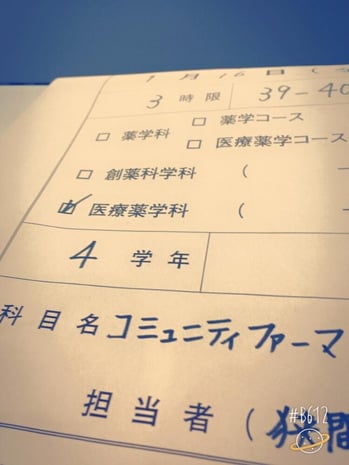 1月16日(
3 時限 39-40
□ 薬学科 □ 薬学コース
□ 医療薬学コース
□ 創薬科学科 (
☑ 医療薬学科 (
4 学年
科目名 コミュニティファーマ
担当者 (狭間
#B612